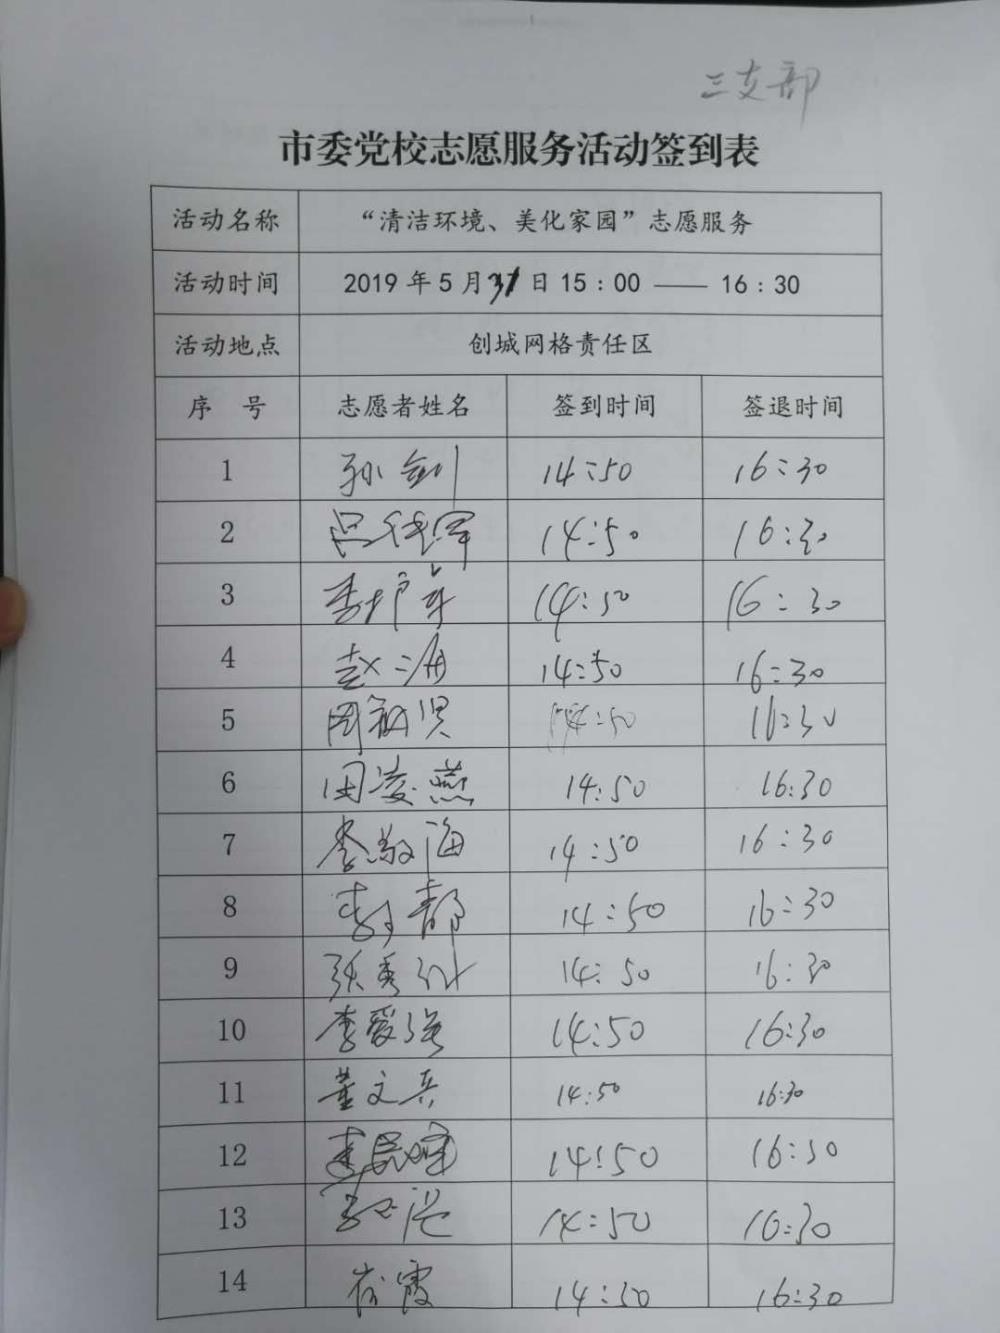 三支部
市委党校志愿服务活动签到表
活动名称 “清洁环境、美化家园”志愿服务
活动时间 2019年5月31日15：00 —— 16：30
活动地点 创城网格责任区
序 号 志愿者姓名 签到时间 签退时间
1 孙剑 14:50 16:30
2 14:50 16:30
3 14:50 16:30
4 赵 海 14:50 16:30
5 周 14:50 16:30
6 田凌燕 14:50 16:30
7 李敬海 14:50 16:30
8 李 14:50 16:30
9 张秀 14:50 16:30
10 李爱强 14:50 16:30
11 董文兵 14:50 16:30
12 李 14:50 16:30
13 14:50 16:30
14 霞 14:50 16:30